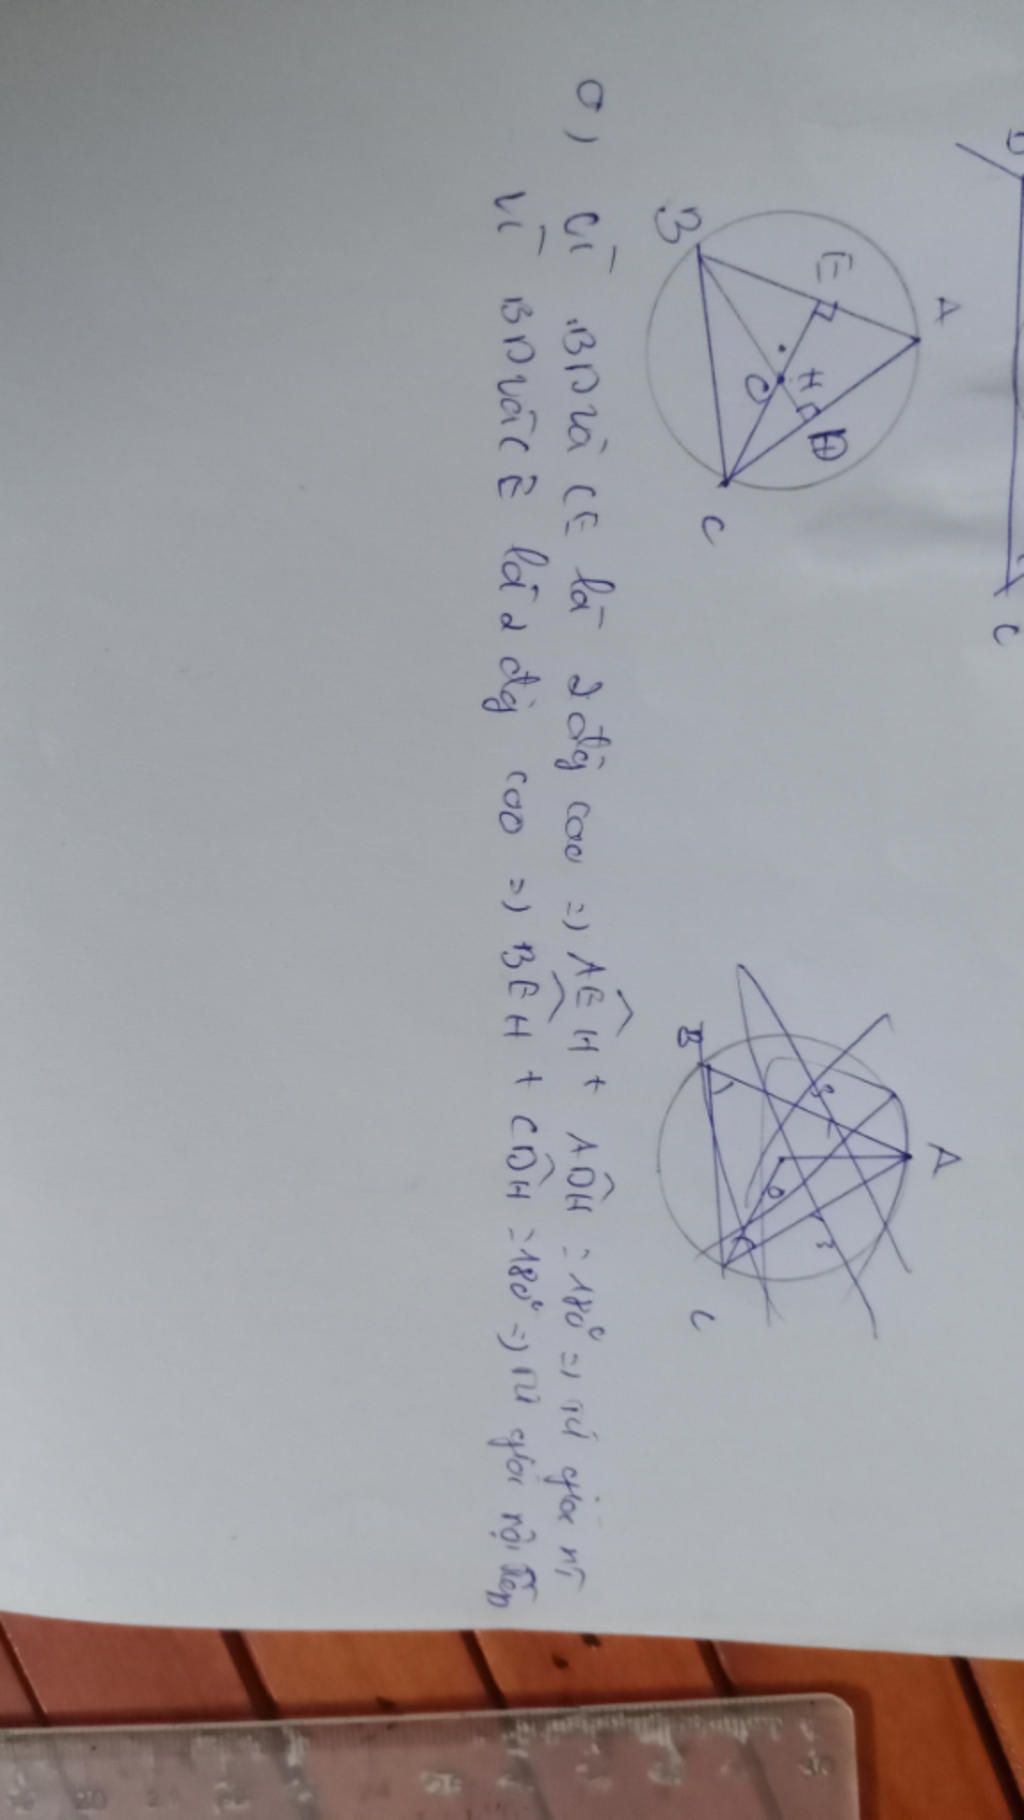 D
C
A
B
E
H
D
O
C
A
B
O
C
a) Vì BD và CE là 2 đg cao => AEH + ADH = 180° => tứ giác nt
Vì BD và CE là 2 đg cao => BEH + CDH = 180° => Tứ giác nội tiếp
30
20